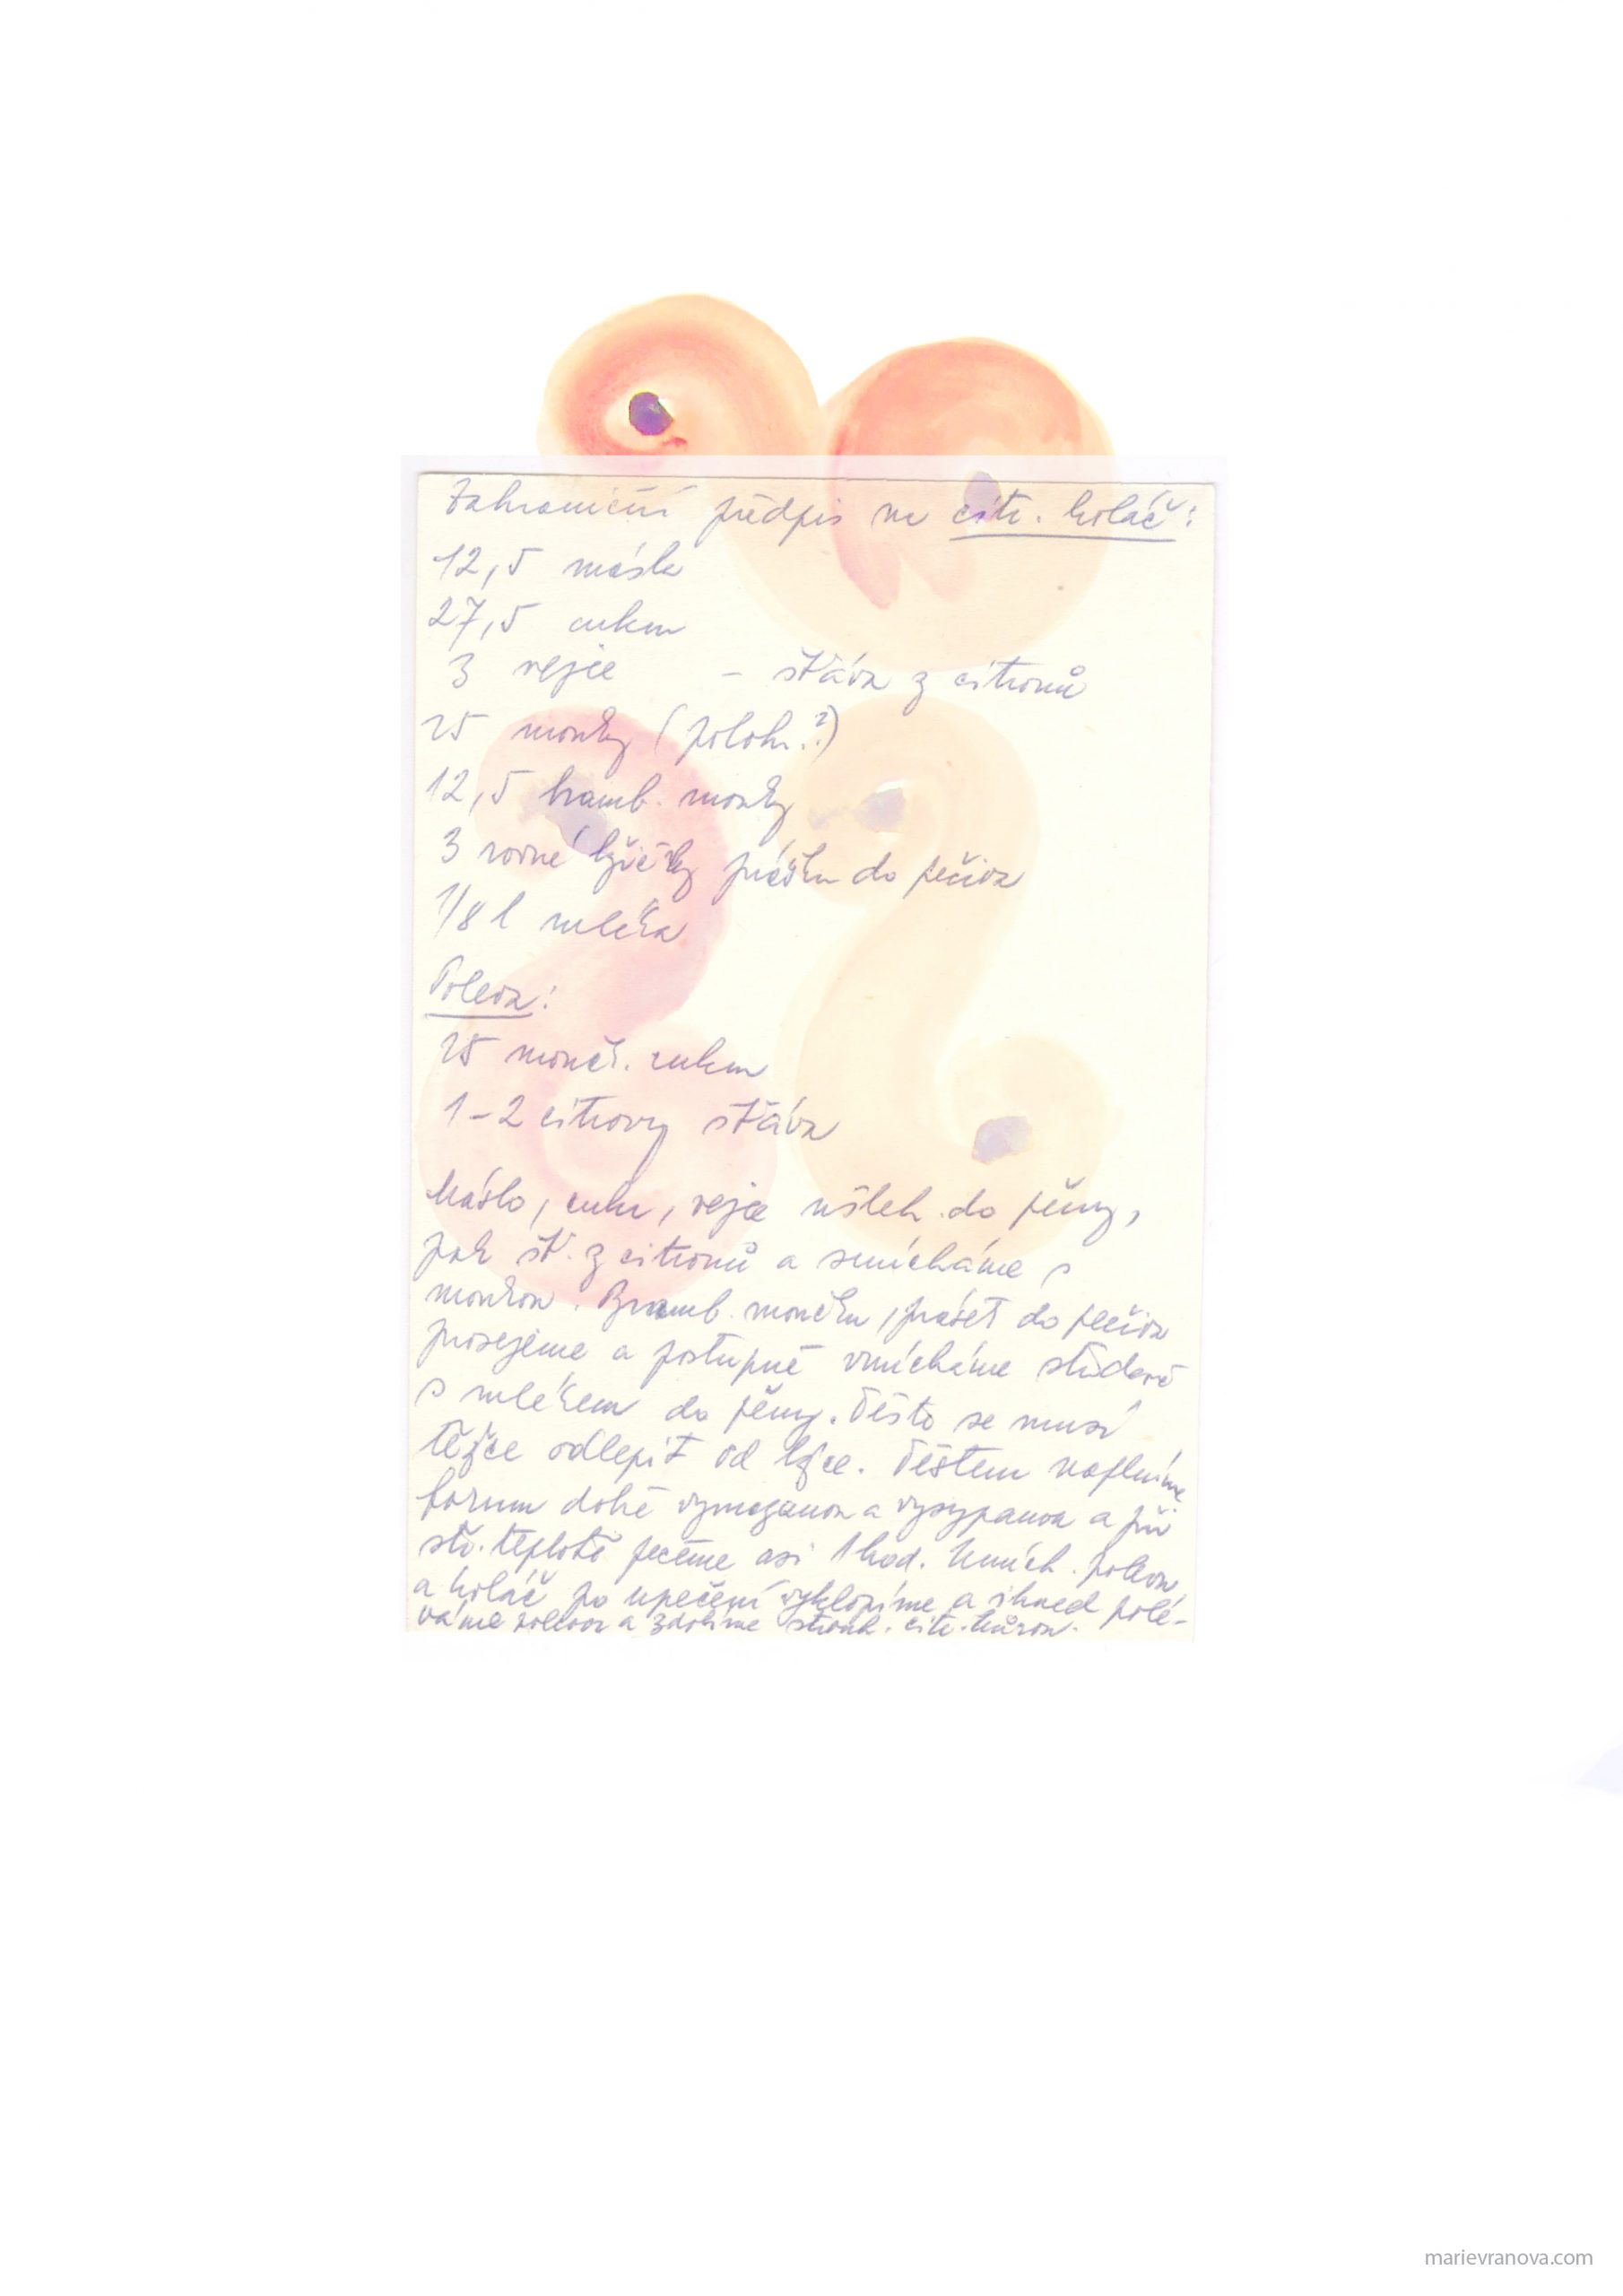 Zahraniční předpis na citr. koláč:
12,5 másla
27,5 cukru
3 vejce – šťáva z citronů
25 mouky (polohr.?)
12,5 bramb. mouky
3 rovné lžičky prášku do pečiva
1/8 l mléka
Poleva:
25 moučk. cukru
1–2 citrony šťáva
Máslo, cukr, vejce ušleh. do pěny,
pak šť. z citronů a smícháme s
moukou. Bramb. moučku, prášek do pečiva
prosejeme a postupně vmícháme střídavě
s mlékem do pěny. Těsto se musí
těžce odlepit od lžíce. Těstem naplníme
formu dobře vymazanou a vysypanou a při
stř. teplotě pečeme asi 1 hod. Umích. polevu
a koláč po upečení vyklopíme a ihned polé-
váme polevou a zdobíme strouh. citr. kůrou.
marievranova.com